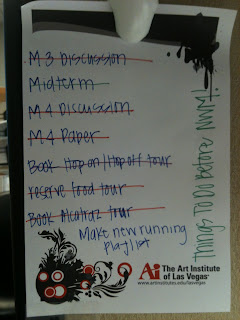 M3 Discussion
Midterm
M4 Discussion
M4 Paper
Book Hop on/Hop off tour
reserve food tour
Book Alcatraz tour
Make new running
playlist
Things TO DO Before NWM!
Ai The Art Institute
of Las Vegas®
www.artinstitutes.edu/lasvegas